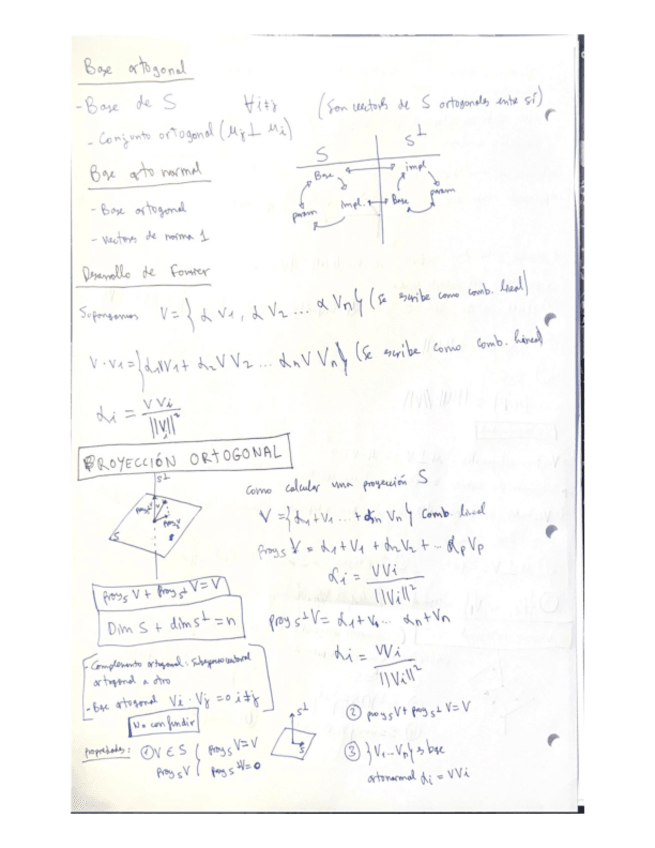 Base ortogonal
- Base de S ∀i≠j (Son vectores de S ortogonales entre sí)
- Conjunto ortogonal (μj ⊥ μi)
S S⊥
Base impl.
param impl. Base param
Base ortonormal
- Base ortogonal
- Vectores de norma 1
Desarrollo de Fourier
Supongamos V = { α V1, α V2 ... α Vn} (Se escribe como comb. lineal)
V · V1 = {α1VV1 + α2 V V2 ... αn V Vn} (Se escribe como comb. lineal)
αi = V Vi / ||Vi||²
PROYECCIÓN ORTOGONAL
S⊥
S
Como calcular una proyección S
V = {α1+V1 ... + αn Vn} comb. lineal
proys V = α1+V1 + α2V2 + ... αpVp
αi = VVi / ||Vi||²
proyS V + proyS⊥ V = V
Dim S + dim S⊥ = n
proyS⊥V = α1+V1 ... αn+Vn
αi = VVi / ||Vi||²
- Complemento ortogonal: subespacio
ortogonal a otro
- Base ortogonal Vi · Vj = 0 i≠j
No confundir
Propiedades: ① V ∈ S { proyS V = V
proyS V { proyS V = 0
S⊥
S
② proyS V + proyS⊥ V = V
③ {V1 ... Vn} es base
ortonormal αi = VVi